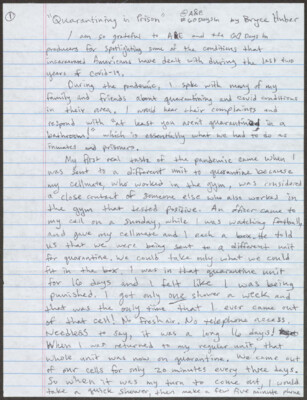 1
"Quarantining in Prison" @A&E @60DaysIn by Boyce
I am so grateful to A&E and the 60 Days In
producers for spotlighting some of the conditions that
incarcerated Americans have dealt with during the last two
years of Covid-19.
During the pandemic, I spoke with many of my
family and friends about quarantining and covid conditions
in their area, I would hear their complaints and
respond with "at least you aren't quarantined in a
bathroom!" which is essentially what we had to do as
inmates and prisoners.
My first real taste of the pandemic came when I
was sent to a different unit to quarantine because
my cellmate, who worked in the gym, was considered
a close contact of someone else who also worked in
the gym that tested positive. An officer came to
my cell on a Sunday, while I was watching football,
and gave my cellmate and I each a box. He told
us that we were being sent to a different unit
for quarantine, we could take only what we could
fit in the box. I went in that quarantine unit
for 16 days and I felt like I was being
punished. I got only one shower a week and
that was the only time that I ever came out
of that cell. No fresh air. No telephone access.
Needless to say, it was a long 16 days!
When I was returned to my regular unit, that
whole unit was now on quarantine. We came out
of our cells for only 20 minutes every three days.
So when it was my turn to come out, I could
take a quick shower, then make a few five minute phone